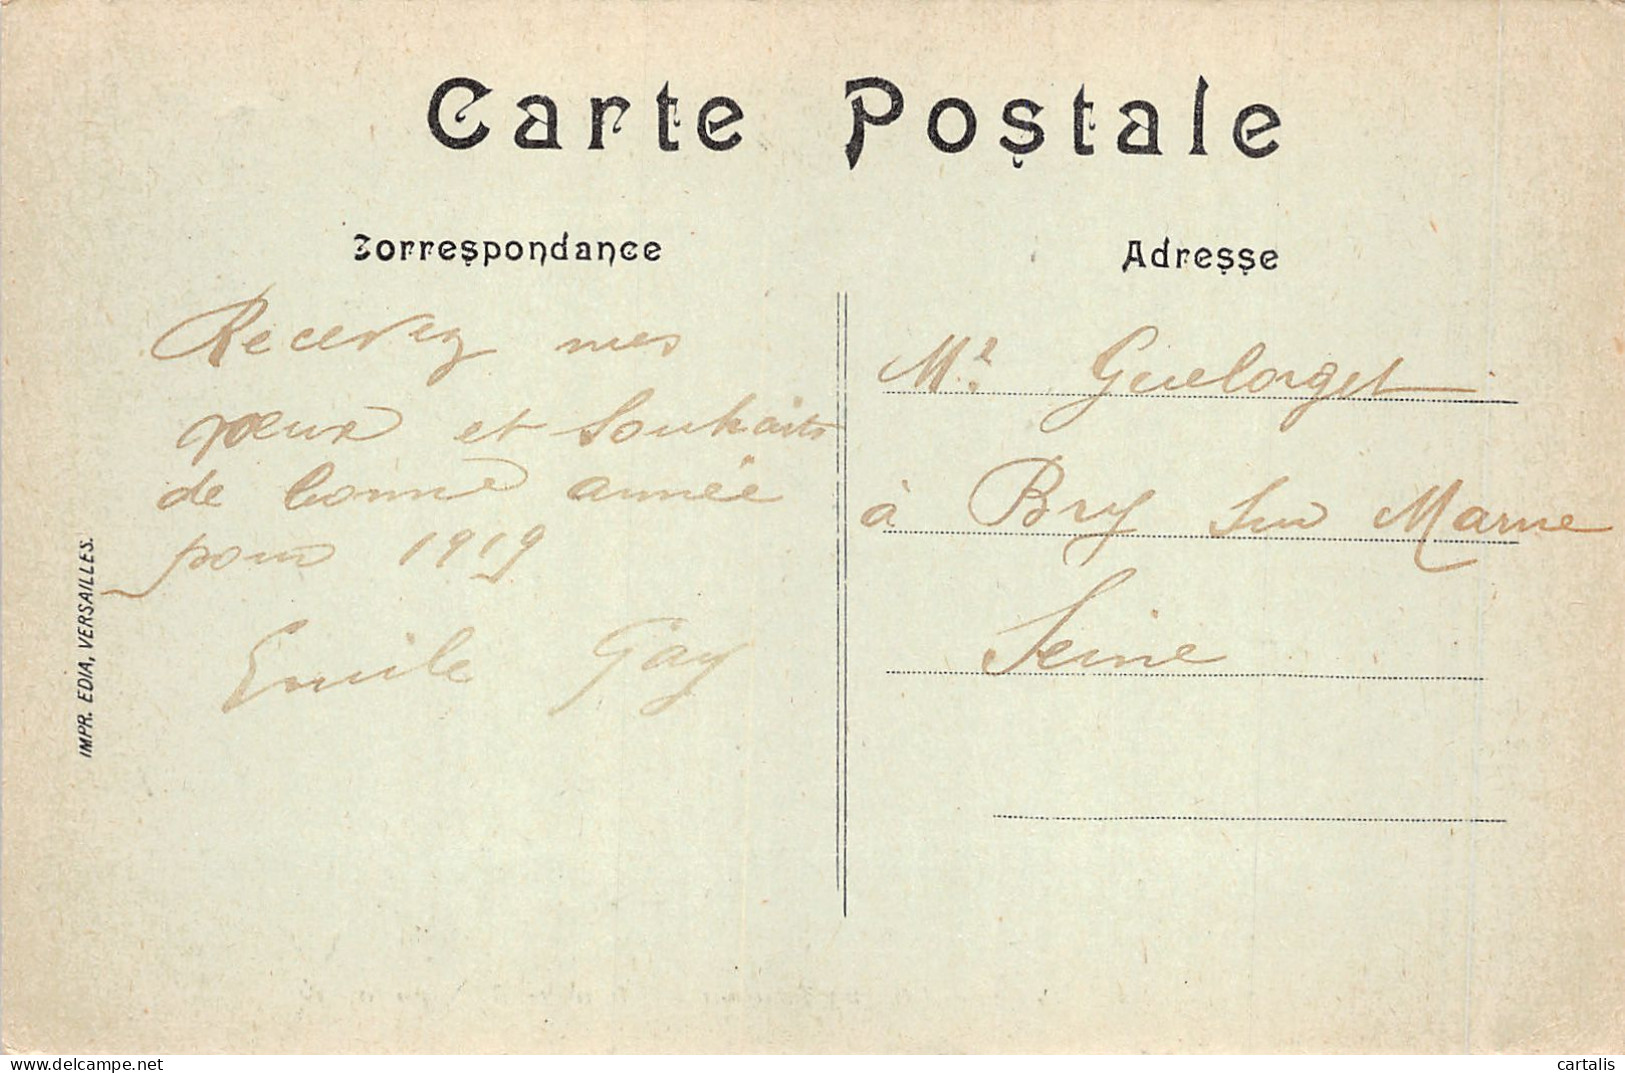 Carte Postale
Correspondance
Recevez mes
vœux et souhaits
de bonne année
pour 1919
Emile Gay
Adresse
Mr. Guelorget
à Bry sur Marne
Seine
IMPR. EDIA, VERSAILLES.
cartalis